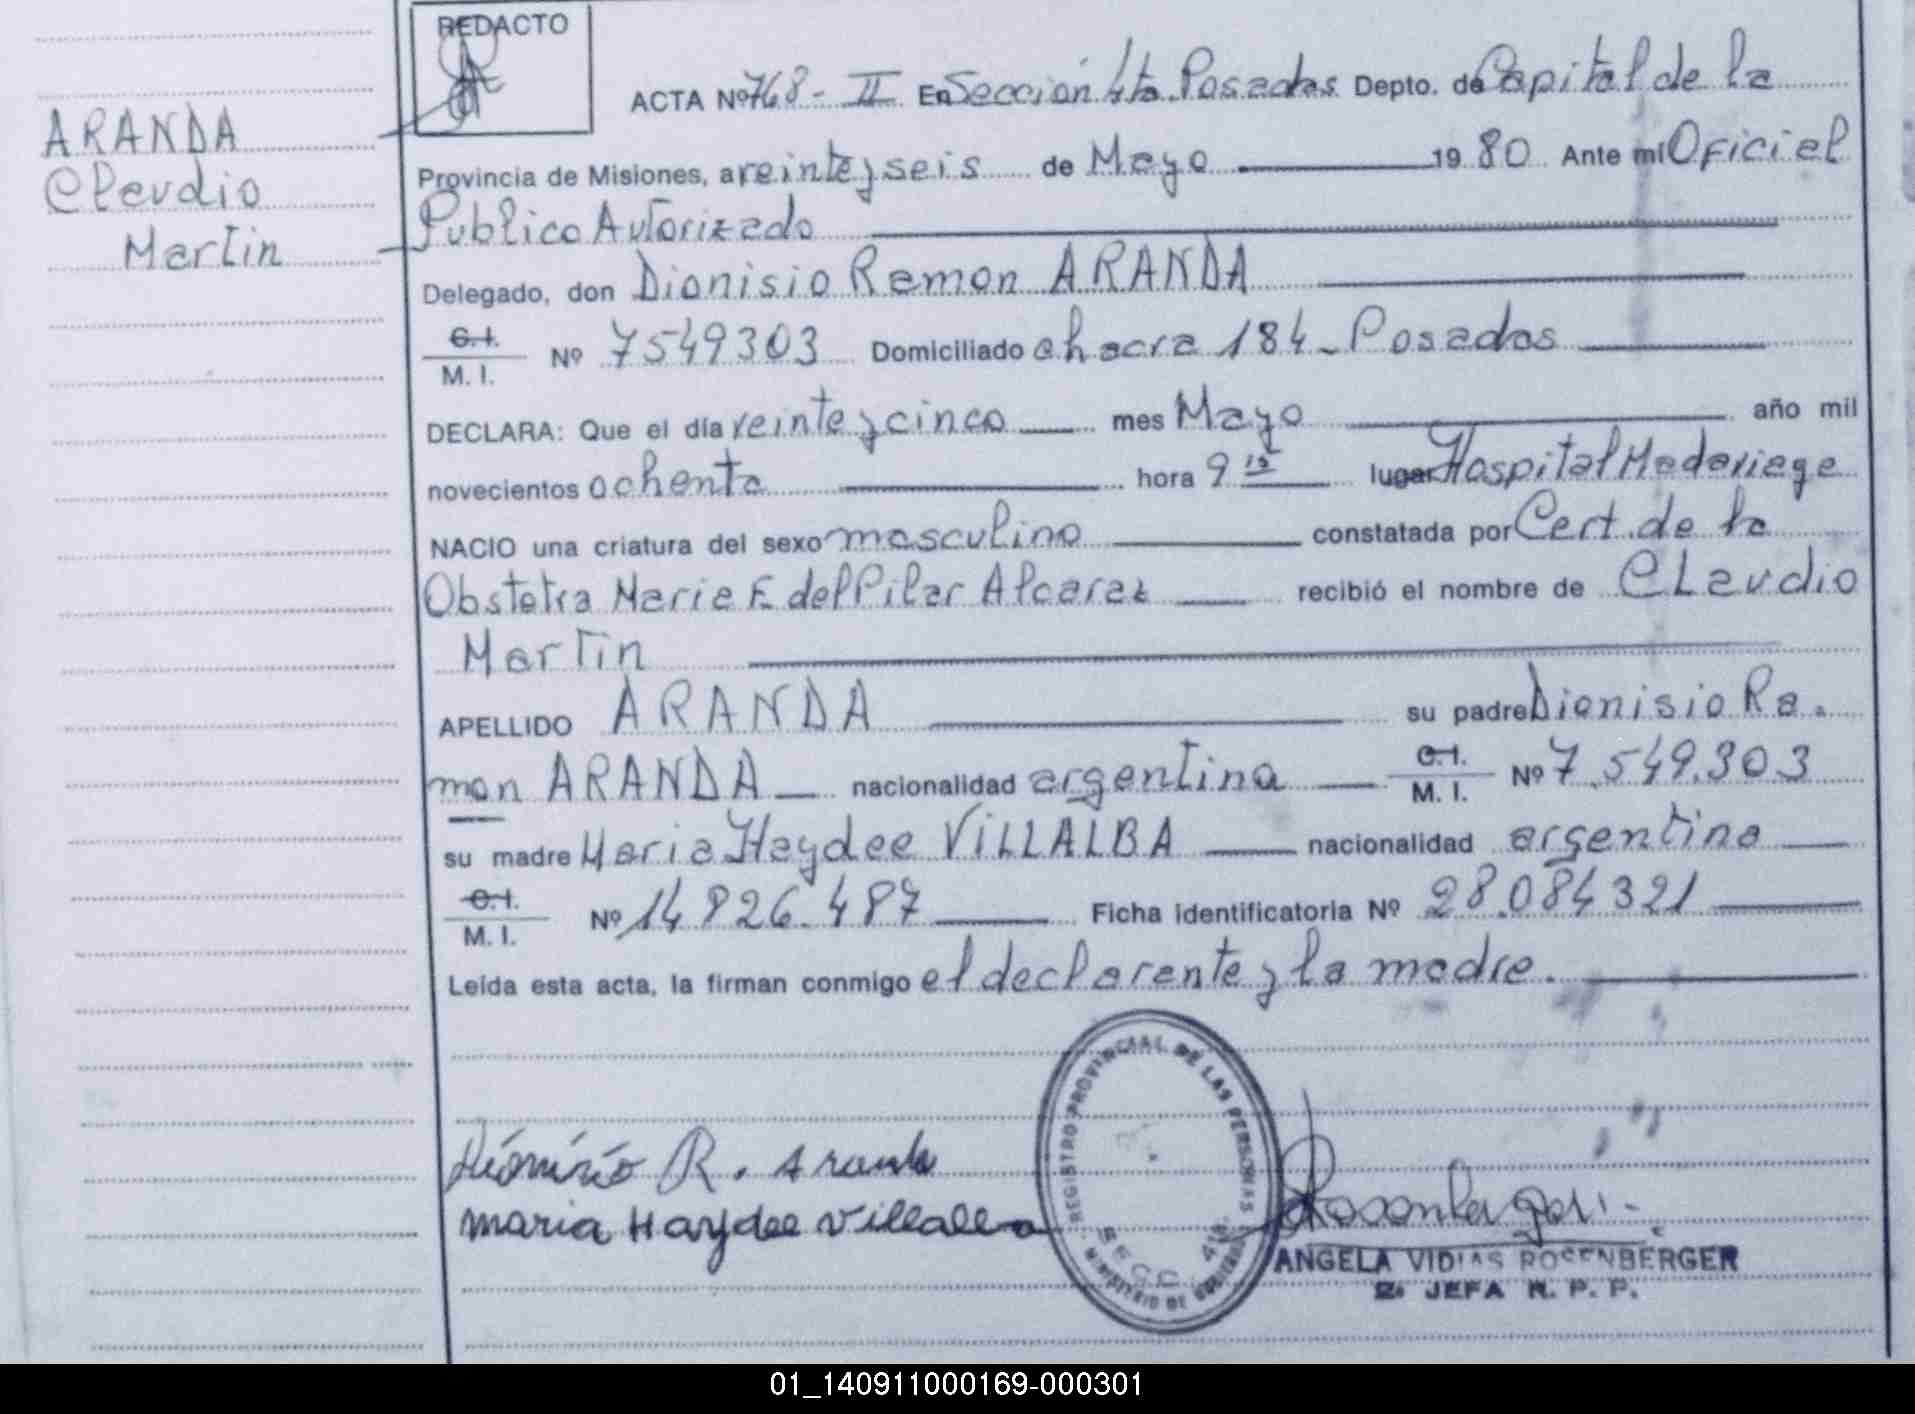 REDACTO
ARANDA
Claudio
Martin
ACTA Nº 768 - II En Sección 4ta. Posadas Depto. de Capital de la
Provincia de Misiones, a veinte y seis de Mayo 19 80 Ante mí Oficial
Publico Autorizado
Delegado, don Dionisio Ramon ARANDA
C.I.
M. I. Nº 7549303 Domiciliado chacra 184 - Posadas
DECLARA: Que el día veinte y cinco mes Mayo año mil
novecientos ochenta hora 9 15 lugar Hospital Madariaga
NACIO una criatura del sexo masculino constatada por Cert. de la
Obstetra Maria E. del Pilar Alcaraz recibió el nombre de Claudio
Martin
APELLIDO ARANDA su padre Dionisio Ra-
mon ARANDA nacionalidad argentina C.I.
M. I. Nº 7.549.303
su madre Maria Haydee VILLALBA nacionalidad argentina
C.I.
M. I. Nº 14.826.487 Ficha identificatoria Nº 28.084321
Leída esta acta, la firman conmigo el declarante y la madre.
REGISTRO PROVINCIAL DE LAS PERSONAS
SECC. 4ta.
MINISTERIO DE GOBIERNO
Dionisio R. Aranda
Maria Haydee Villalba
Rosenberger
ANGELA VIDIAS ROSENBERGER
2a JEFA R. P. P.
01_140911000169-000301